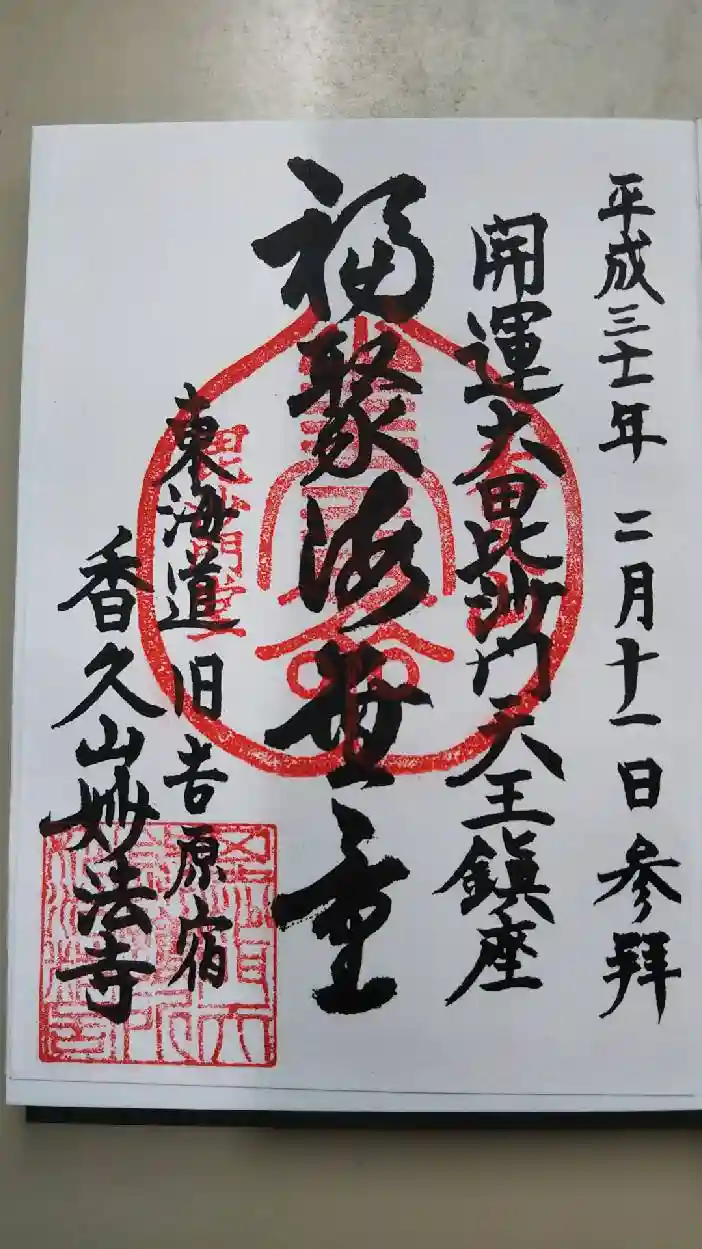 平成三十一年 二月十一日 参拜
開運大毘沙門天王鎭座
福聚海無量
東海道 旧吉原宿
香久山妙法寺